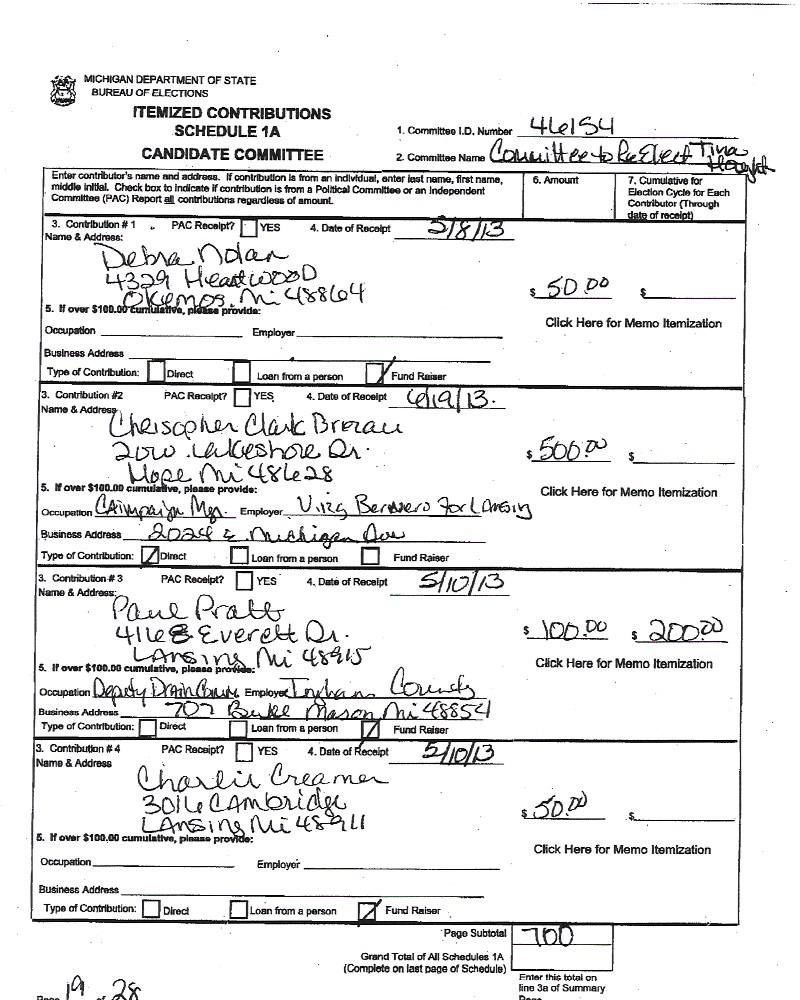 MICHIGAN DEPARTMENT OF STATE
BUREAU OF ELECTIONS
ITEMIZED CONTRIBUTIONS
SCHEDULE 1A
CANDIDATE COMMITTEE
1. Committee I.D. Number 46154
2. Committee Name Committee to ReElect Tina
Enter contributor's name and address. If contribution is from an individual, enter last name, first name, middle initial. Check box to indicate if contribution is from a Political Committee or an Independent Committee (PAC) Report all contributions regardless of amount.
6. Amount
7. Cumulative for Election Cycle for Each Contributor (Through date of receipt)
3. Contribution # 1 PAC Receipt? YES 4. Date of Receipt 5/8/13
Name & Address:
Debra Nolan
4329 Heartwood
Okemos, Mi 48864
$ 50.00 $
5. If over $100.00 cumulative, please provide:
Click Here for Memo Itemization
Occupation Employer
Business Address
Type of Contribution: Direct Loan from a person Fund Raiser
3. Contribution #2 PAC Receipt? YES 4. Date of Receipt 6/19/13.
Name & Address
Clark
2010 Lakeshore Dr.
Hope Mi 48628
$ 500.00 $
5. If over $100.00 cumulative, please provide:
Click Here for Memo Itemization
Occupation CAmpaign Mgr. Employer Virg Bernero For LAnsing
Business Address 2024 E Michigan Ave
Type of Contribution: Direct Loan from a person Fund Raiser
3. Contribution # 3 PAC Receipt? YES 4. Date of Receipt 5/10/13
Name & Address:
Paul Pratt
Everett Dr.
LAnsing Mi 48915
$ 100.00 $ 200.00
5. If over $100.00 cumulative, please provide:
Click Here for Memo Itemization
Occupation Deputy Drain Comm Employer Ingham County
Business Address 707 Mason Mi 48854
Type of Contribution: Direct Loan from a person Fund Raiser
3. Contribution # 4 PAC Receipt? YES 4. Date of Receipt 5/10/13
Name & Address
Charlie Creamer
3016 CAmbridge
LAnsing Mi 48911
$ 50.00 $
5. If over $100.00 cumulative, please provide:
Click Here for Memo Itemization
Occupation Employer
Business Address
Type of Contribution: Direct Loan from a person Fund Raiser
Page Subtotal 700
Grand Total of All Schedules 1A
(Complete on last page of Schedule)
Enter this total on
line 3a of Summary
Page
Page 19 of 28